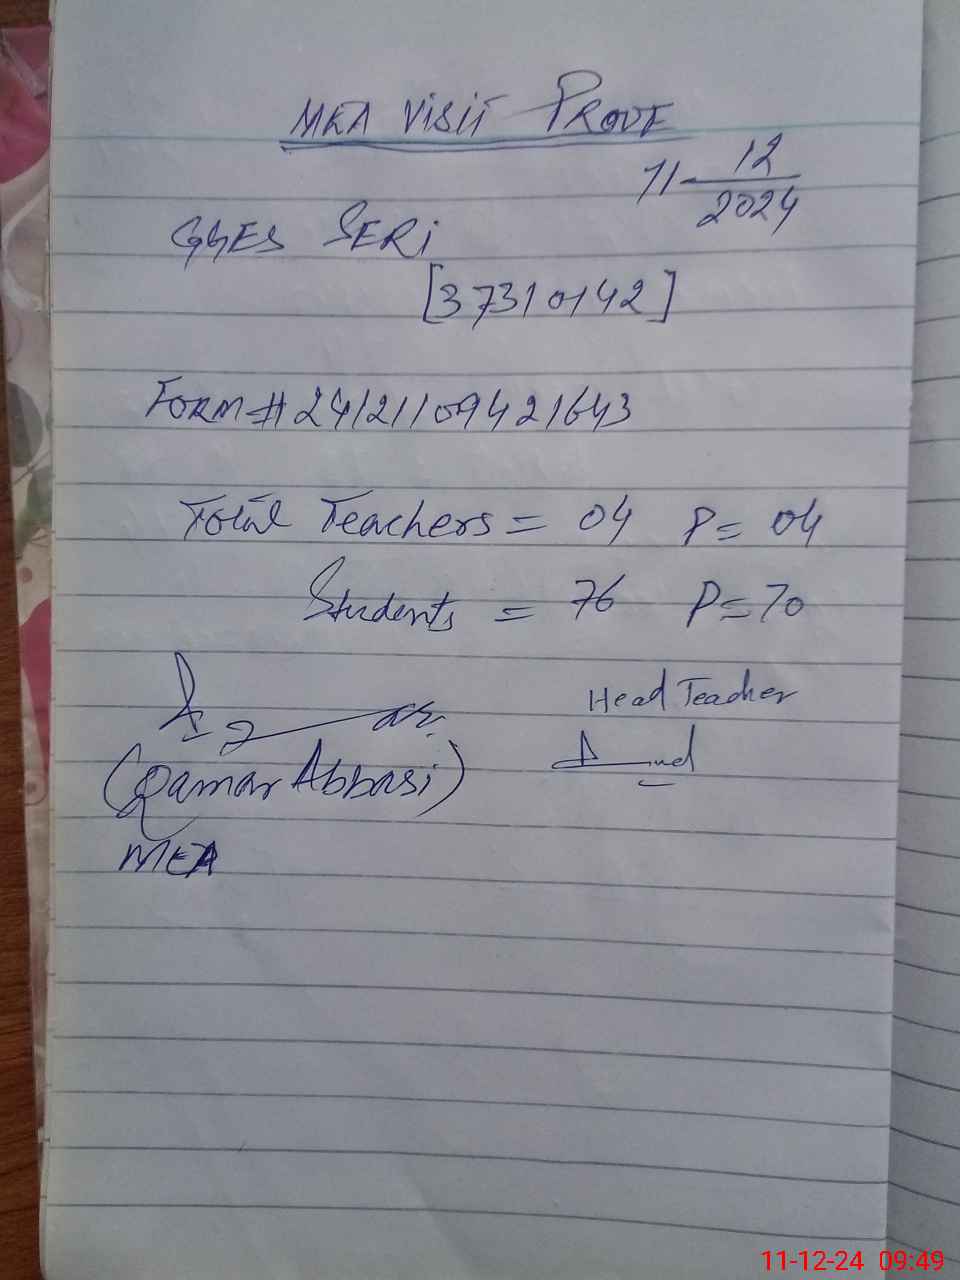 MEA VISIT PROVE
11-12/2024
GGES SERI
[37310142]
Form # 24121109421643
Total Teachers = 04 P= 04
Students = 76 P= 70
Head Teacher
(Qamar Abbasi)
MEA
11-12-24 09:49